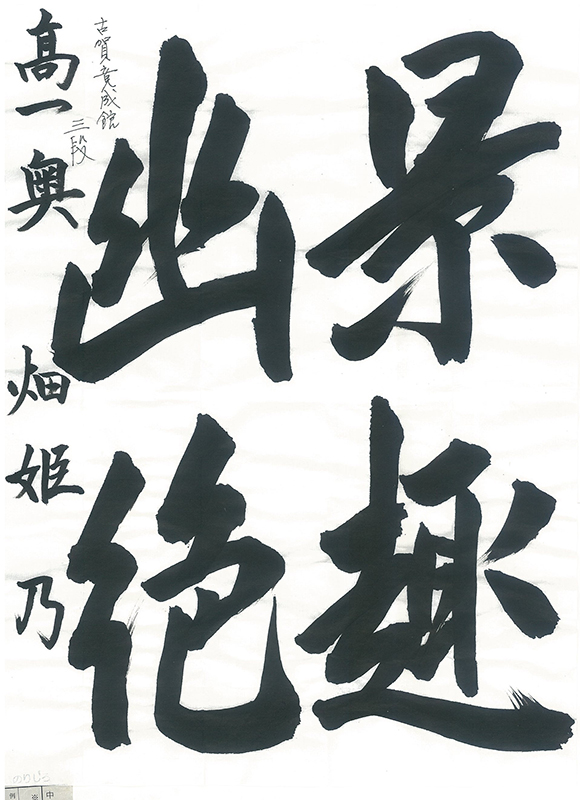 景趣
幽絶
古賀竟成館
三段
高一奥畑姫乃